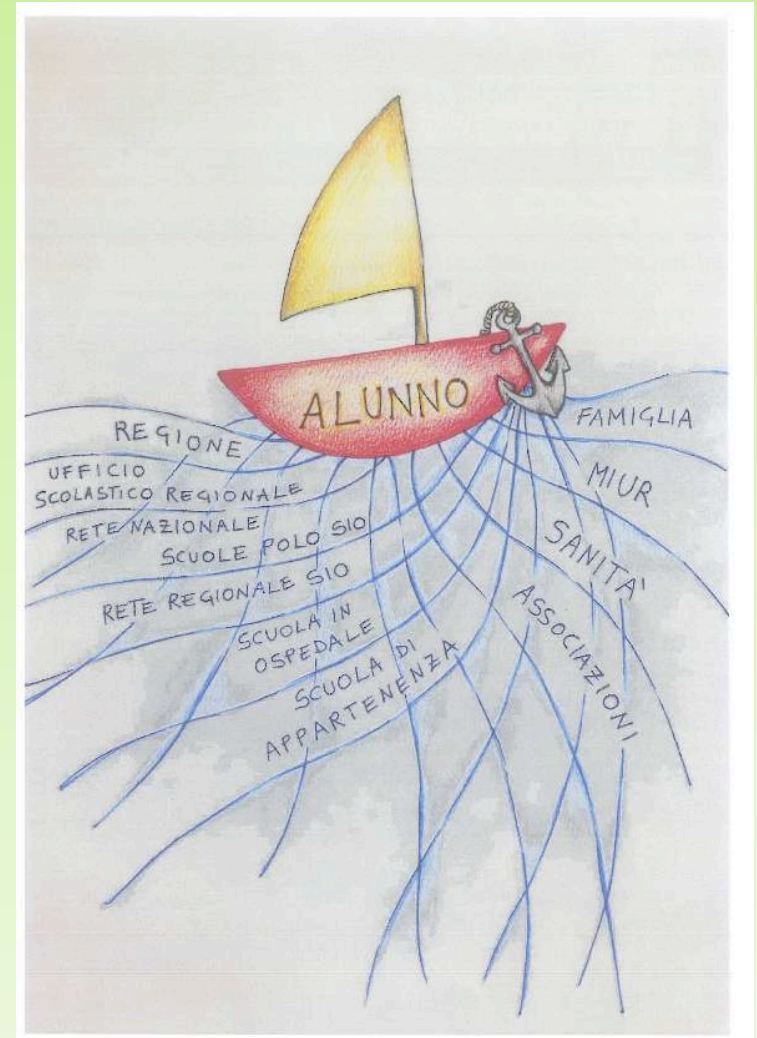 ALUNNO
REGIONE
UFFICIO
SCOLASTICO REGIONALE
RETE NAZIONALE
SCUOLE POLO SIO
RETE REGIONALE SIO
SCUOLA IN
OSPEDALE
SCUOLA DI
APPARTENENZA
FAMIGLIA
MIUR
SANITA'
ASSOCIAZIONI